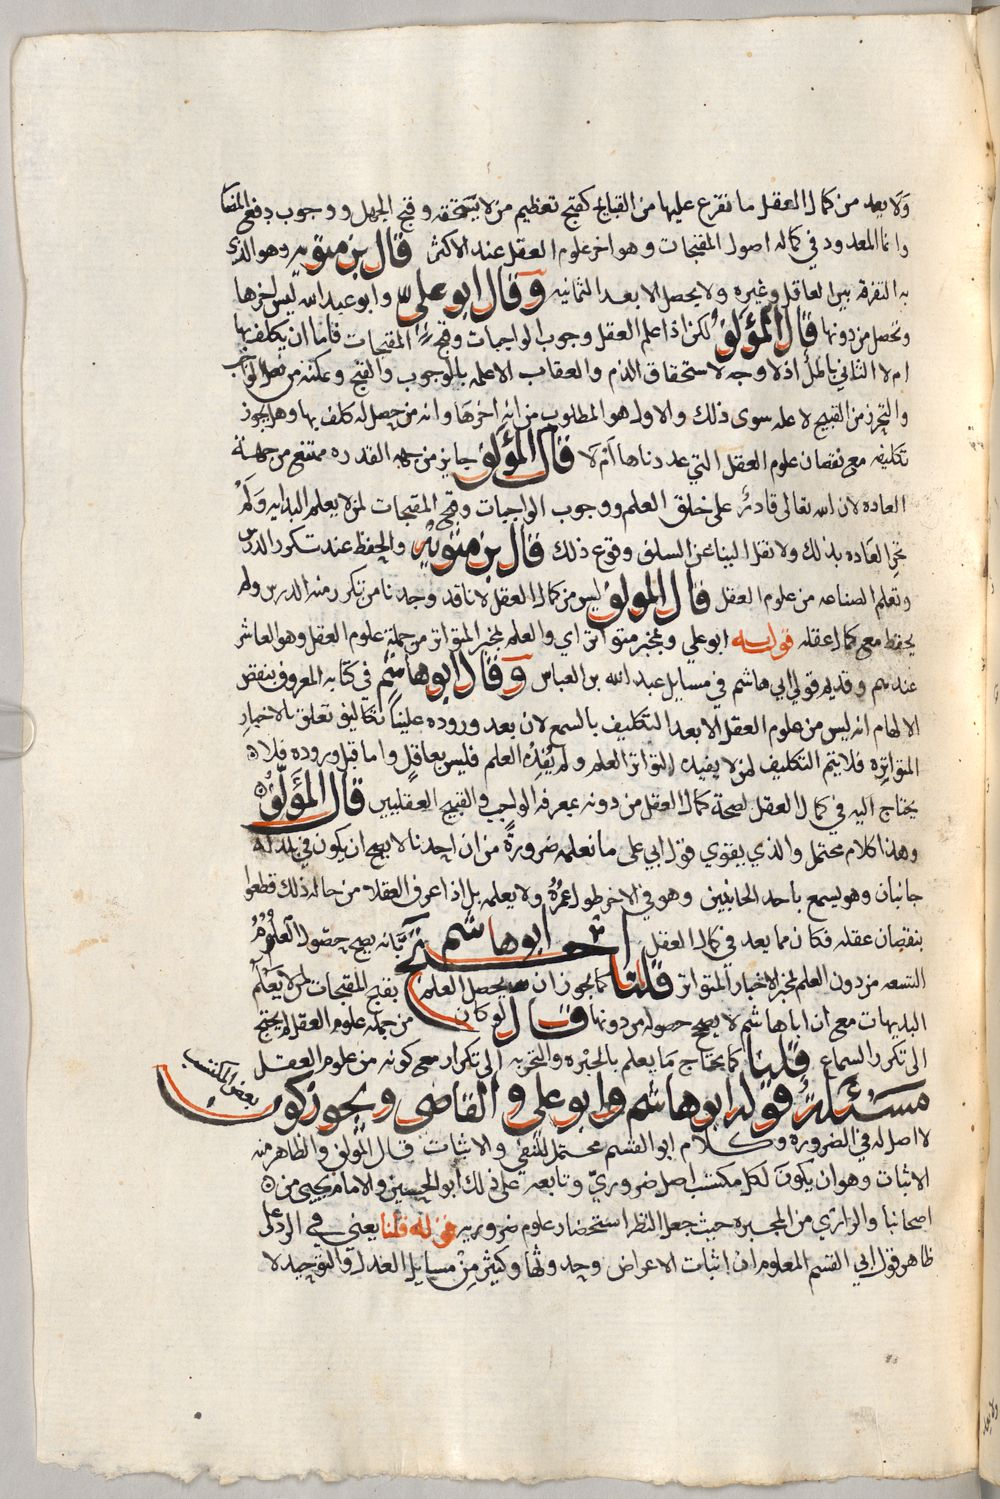 ولا يعد من كمال العقل ما تفرع عليها من القبايح كقبح تعظيم من لا يستحقه وقبح الجهل ووجوب دفع المضار
وانما المعدود في كماله اصول المقبحات وهو اخر علوم العقل عند الاكثر قال بن متويه وهو الذي
به التفرقة بين العاقل وغيره ولا يحصل الا بعد الثمانية وقال ابو علي وابو عبد الله ليس اخرها
وتحصل من دونها قال المؤلف لكن اذا علم العقل وجوب الواجبات وقبح المقبحات فاما ان يكلف بها
ام لا الثاني باطل اذ لا وجه لاستحقاق الذم والعقاب الا علمه بالوجوب والقبح وتمكنه من فعل الواجب
والتحرز من القبيح لا علة سوى ذلك والاول هو المطلوب من انه اخرها وانه من حصل له كلف بها وهل يجوز
تكليفه مع نقصان علوم العقل التي عددناها ام لا قال المؤلف جايز من جهه القدره ممتنع من جهة
العاده لان الله تعالى قادر على خلق العلم ووجوب الواجبات وقبح المقبحات لمن لا يعلم البدايه ولم
تجر العاده بذلك ولا نقل الينا عن السلف وقوع ذلك قال بن متويه والحفظ عند تكرر الدرس
وتعلم الصناعه من علوم العقل قال المولف ليس من كمال العقل لانا قد وجدنا من تكرر منه الدرس ولم
يحفظ مع كمال عقله قوله ابو علي وبمخبر متواتر اي والعلم بمخبر المتواتر من جملة علوم العقل وهو العاشر
عندهم وقديم قولي ابي هاشم في مسايل عبد الله بن العباس وقال ابو هاشم في كتابه المعروف بنقض
الالهام انه ليس من علوم العقل الا بعد التكليف بالسمع لان بعد وروده علينا تكاليف تعلق بالاخبار
المتواتره فلا يتم التكليف لمن لا يفيده التواتر العلم ولم يفده العلم فليس بعاقل واما قبل وروده فلا
يحتاج اليه في كمال العقل لصحة كمال العقل من دونه بمعرفه الواجب والقبيح العقليين قال المؤلف
وهذا كلام محتمل والذي يقوي قول ابي علي ما نعلمه ضرورة من ان احدنا لا يصح ان يكون في بلد له
جانبان وهو يسمع باحد الجانبين وهو في الاخر طول عمره ولا يعلمه بل اذا عرف العقلا من حاله ذلك قطعوا
بنقصان عقله فكان مما يعد في كمال العقل احتج ابو هاشم بانه يصح حصول العلوم
التسعه من دون العلم بمخبر الاخبار المتواتر قلنا كما يجوز ان يحصل العلم بقبح المقبحات لمن لا يعلم
البديهات مع ان ابا هاشم لا يصح حصوله من دونها قال لو كان من جمله علوم العقل لم يحتج
الى تكرر السماع قلنا كما يحتاج ما يعلم بالخبره والتجربه الى تكرار مع كونه من علوم العقل
مسئلة قوله ابو هاشم وابو علي والقاضي ويجوز كون بعض المكتسب
لا اصل له في الضرورة وكلام ابو القسم محتمل للنفي والاثبات قال المولف والظاهر منه
الاثبات وهو ان يكون لكل مكتسب اصل ضروري وتابعه على ذلك ابو الحسين والامام يحيى من
اصحابنا والرازي من المجبره حيث جعل النظر استحضار علوم ضروريه قوله قلنا يعني في الرد على
ظاهر قول ابي القسم المعلوم ان اثبات الاعراض وحدوثها وكثير من مسايل العدل والتوحيد لا